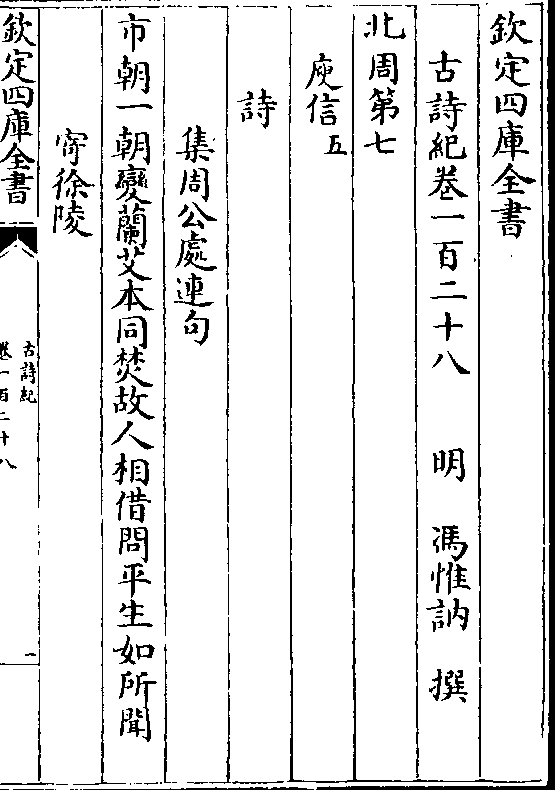 欽定四庫全書
古詩紀卷一百二十八 明 馮惟訥 撰
北周第七
庾信五
詩
集周公處連句
市朝一朝變蘭艾本同焚故人相借問平生如所聞
寄徐陵
欽定四庫全書
古詩紀
卷一百二十八
一